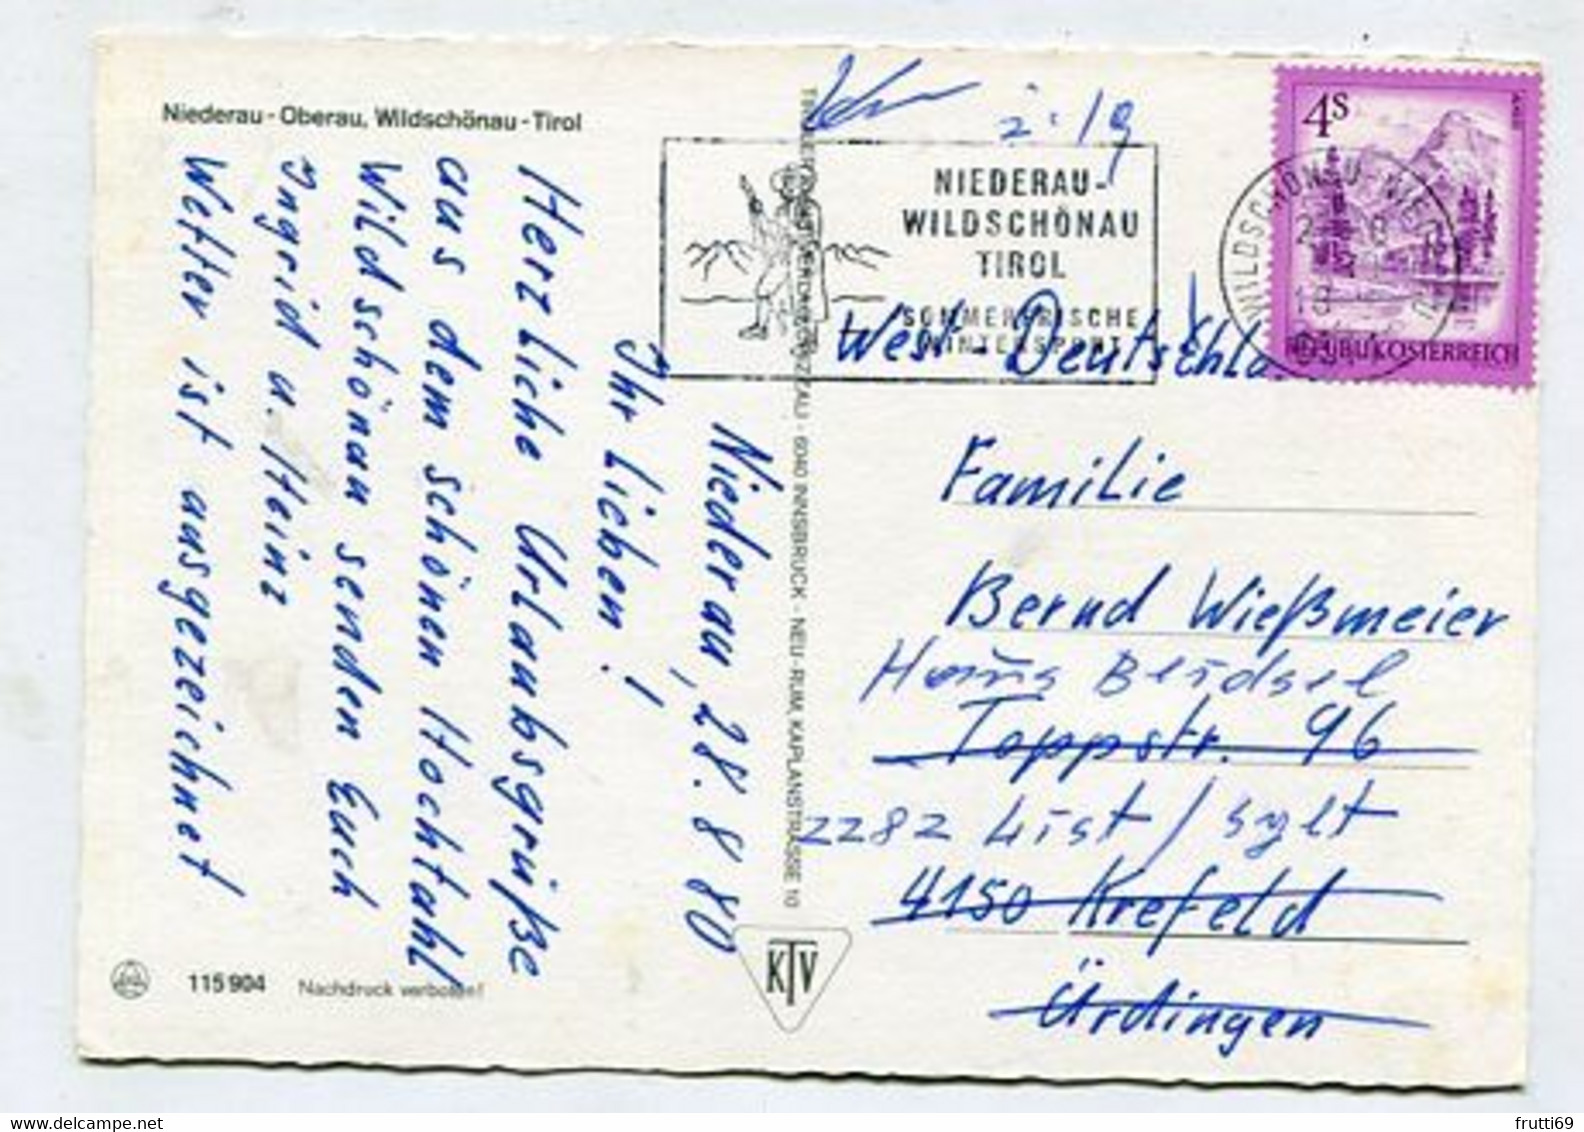 Niederau - Oberau, Wildschönau - Tirol
Niederau, 28.8.80
Ihr Lieben!
Herzliche Urlaubsgrüße
aus dem schönen Hochtahl
Wildschönau senden Euch
Ingrid u. Heinz
Wetter ist ausgezeichnet
115 904 Nachdruck verboten!
6040 INNSBRUCK - NEU-RUM, KAPLANSTRASSE 10
KTV
NIEDERAU-
WILDSCHÖNAU
TIROL
SOMMERFRISCHE
WINTERSPORT
4S
REPUBLIK ÖSTERREICH
West-Deutschla
Familie
Bernd Wießmeier
Haus Beidsel
Toppstr. 96
2282 List / Sylt
4150 Krefeld
Ürdingen
www.delcampe.net
frutti69